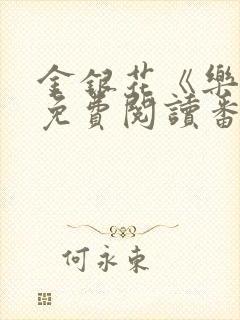 金銀花《樂
免費閱讀番
何永東